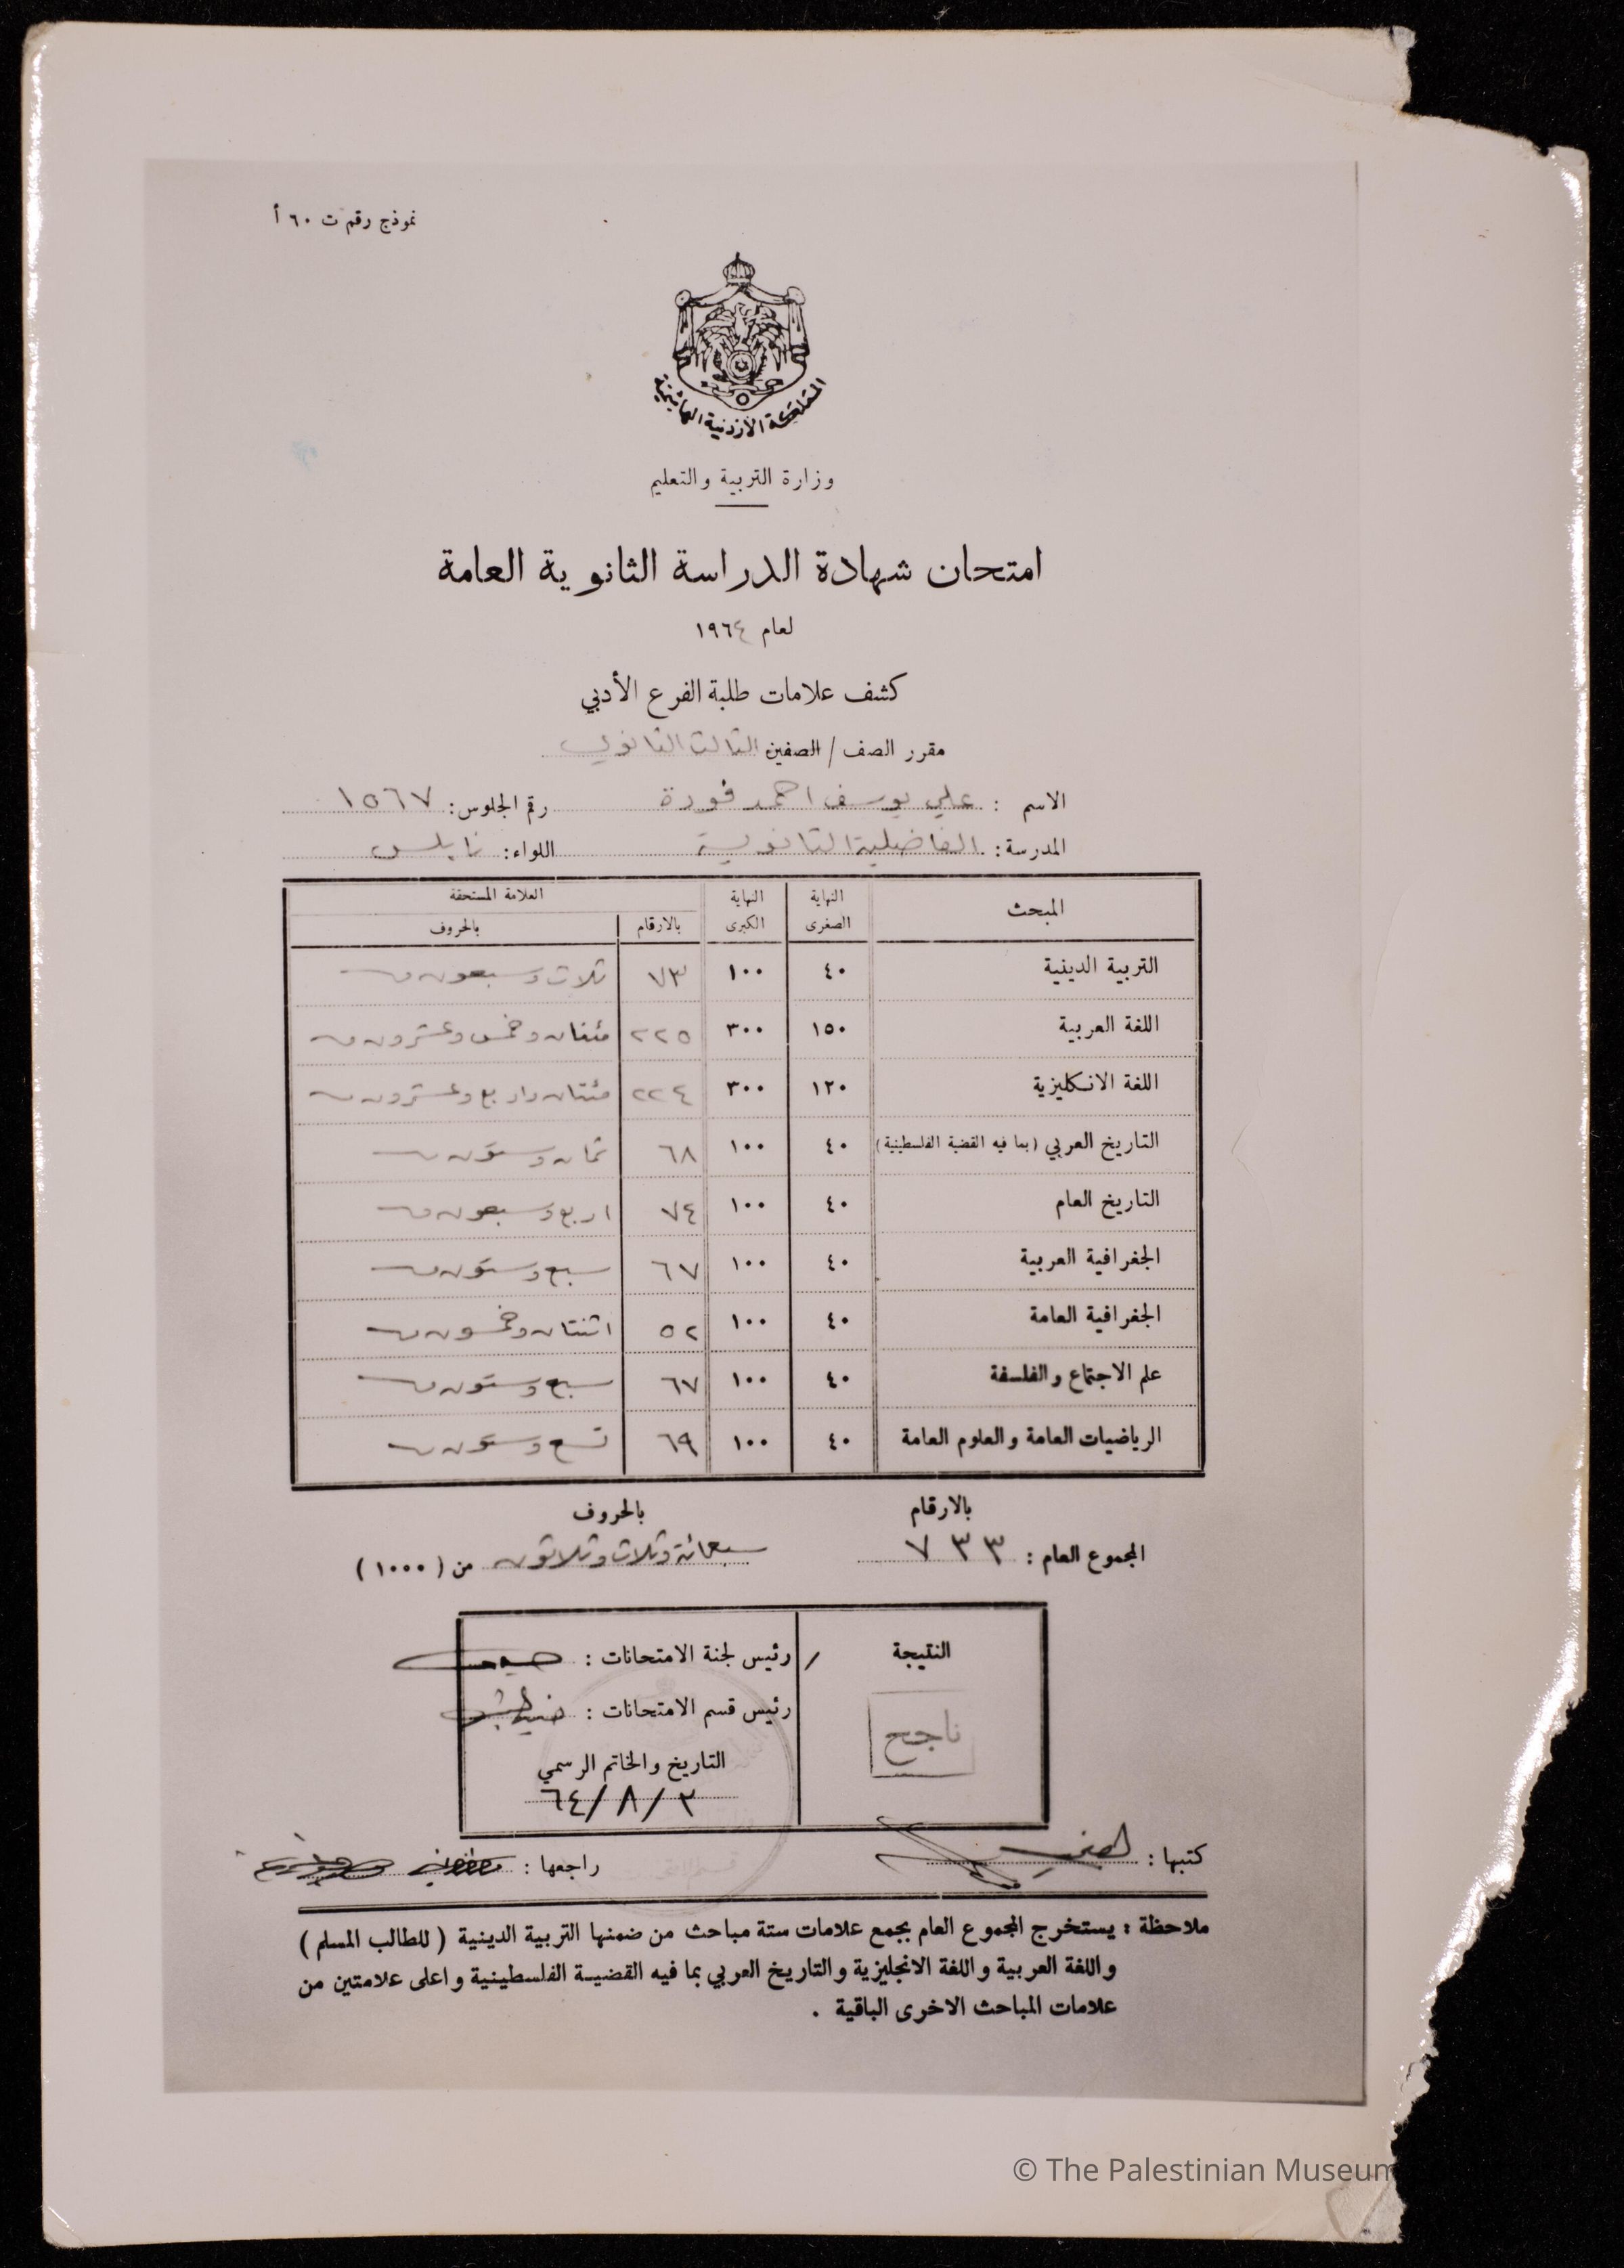 نموذج رقم ت ٦٠ أ
المملكة الأردنية الهاشمية
وزارة التربية والتعليم
امتحان شهادة الدراسة الثانوية العامة
لعام ١٩٦٤
كشف علامات طلبة الفرع الأدبي
مقرر الصف / الصفين الثالث الثانوي
الاسم : علي يوسف احمد فودة رقم الجلوس: ١٥٦٧
المدرسة: الفاضلية الثانوية اللواء: نابلس
المبحث النهاية الصغرى النهاية الكبرى العلامة المستحقة
بالارقام بالحروف
التربية الدينية ٤٠ ١٠٠ ٧٣ ثلاث وسبعون
اللغة العربية ١٥٠ ٣٠٠ ٢٢٥ مئتان وخمس وعشرون
اللغة الانكليزية ١٢٠ ٣٠٠ ٢٢٤ مئتان واربع وعشرون
التاريخ العربي (بما فيه القضية الفلسطينية) ٤٠ ١٠٠ ٦٨ ثمان وستون
التاريخ العام ٤٠ ١٠٠ ٧٤ اربع وسبعون
الجغرافية العربية ٤٠ ١٠٠ ٦٧ سبع وستون
الجغرافية العامة ٤٠ ١٠٠ ٥٢ اثنتان وخمسون
علم الاجتماع والفلسفة ٤٠ ١٠٠ ٦٧ سبع وستون
الرياضيات العامة والعلوم العامة ٤٠ ١٠٠ ٦٩ تسع وستون
بالارقام بالحروف
المجموع العام : ٧٣٣ سبعمائة وثلاث وثلاثون من (١٠٠٠)
النتيجة
ناجح
رئيس لجنة الامتحانات :
رئيس قسم الامتحانات :
التاريخ والخاتم الرسمي
٦٤/٨/٣
كتبها : راجعها :
ملاحظة : يستخرج المجموع العام بجمع علامات ستة مباحث من ضمنها التربية الدينية (للطالب المسلم)
واللغة العربية واللغة الانجليزية والتاريخ العربي بما فيه القضية الفلسطينية واعلى علامتين من
علامات المباحث الاخرى الباقية .
© The Palestinian Museum